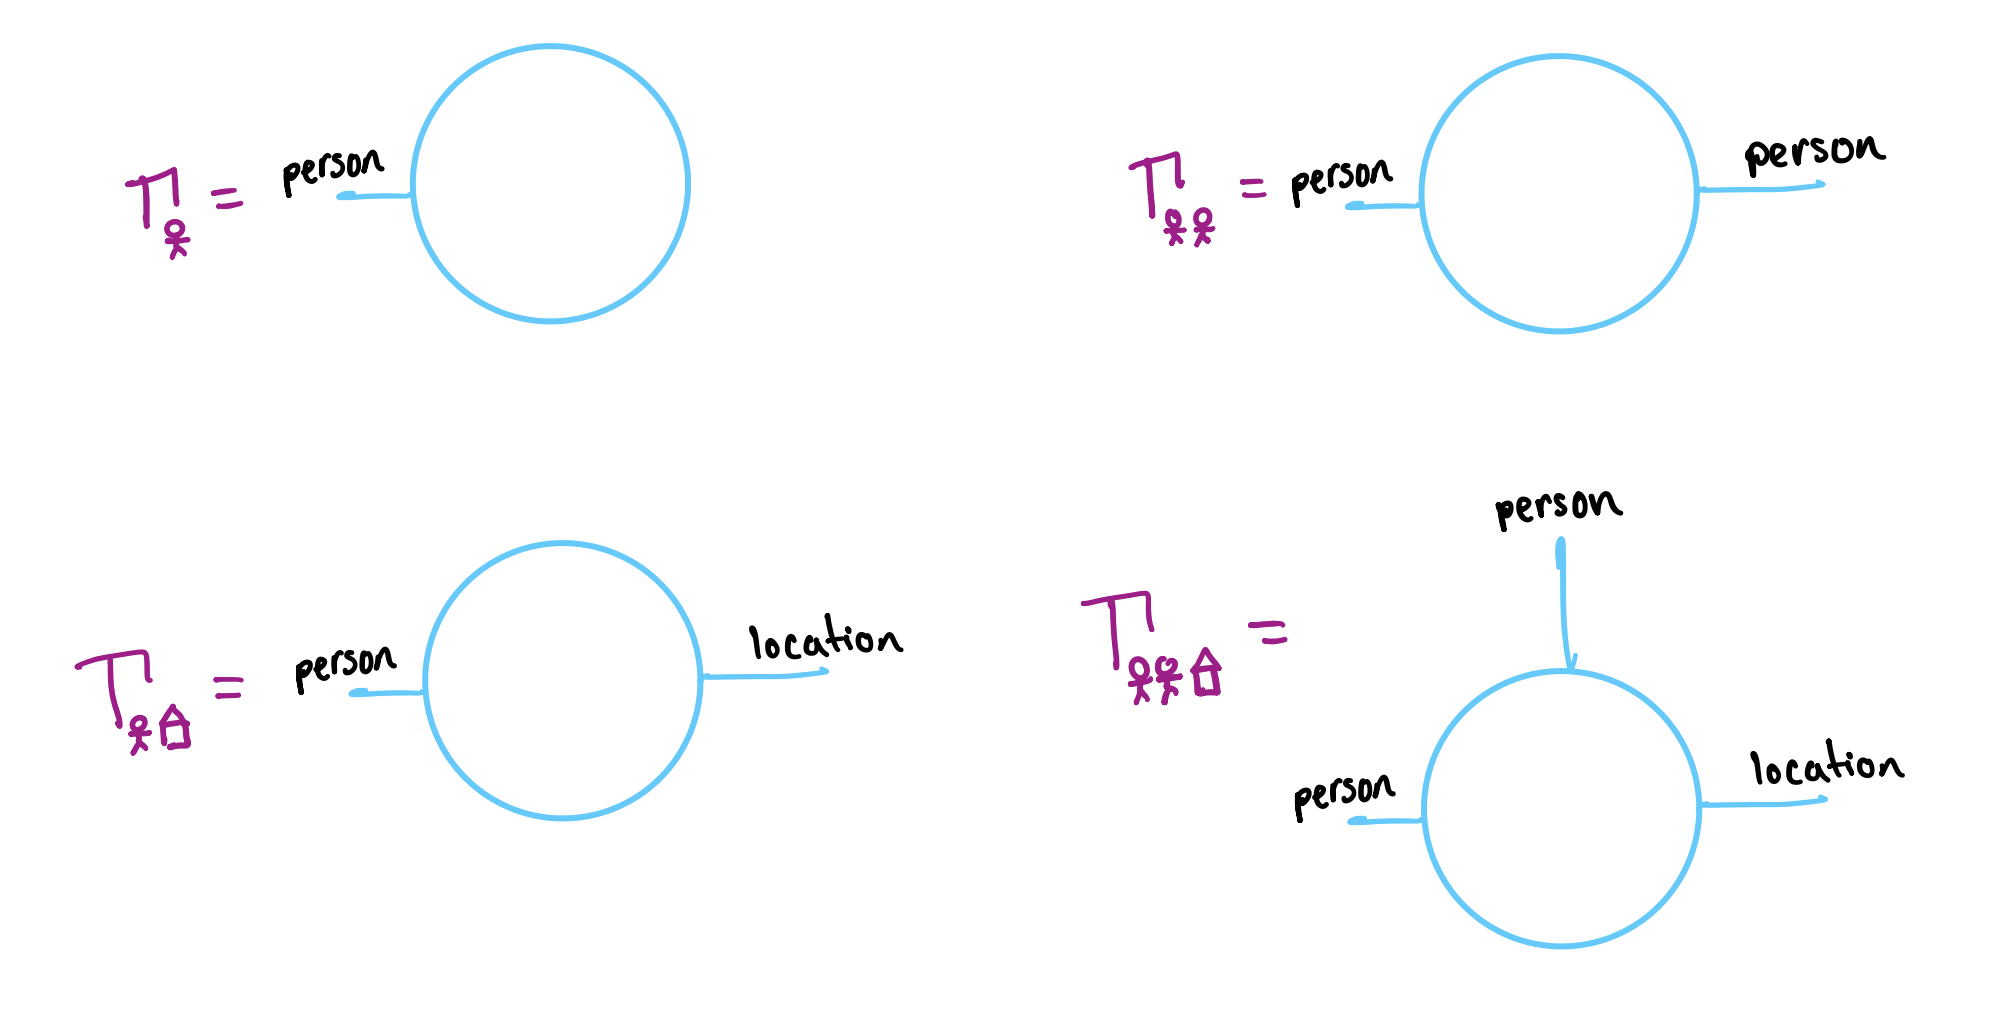 π = person
π = person person
π = person location
person
π =
person location